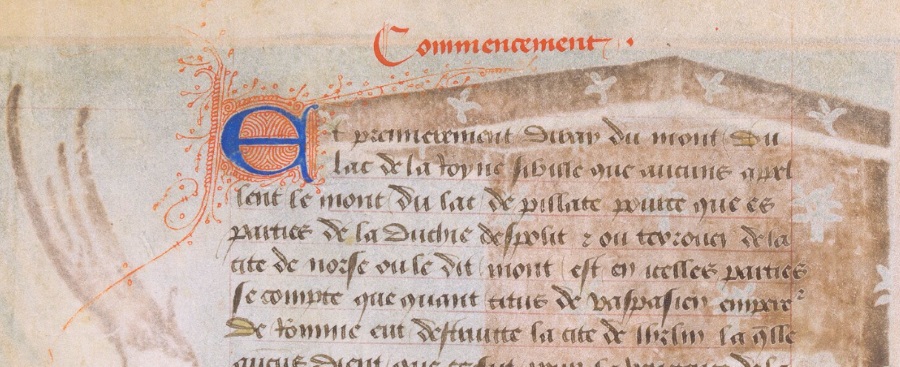 Commencement
Et premierement diray du mont du
lac de la Royne sibille que aucuns apel
lent le mont du lac de pillate pource que es
parties de la Duchie despolit ⁊ ou terrouer de la
cite de norse ou le dit mont est en icelles parties
se compte que quant titus de vaspasien empere²
de Romme eut destruitte la cite de Jhrlm la q̄lle
aucuns dient que